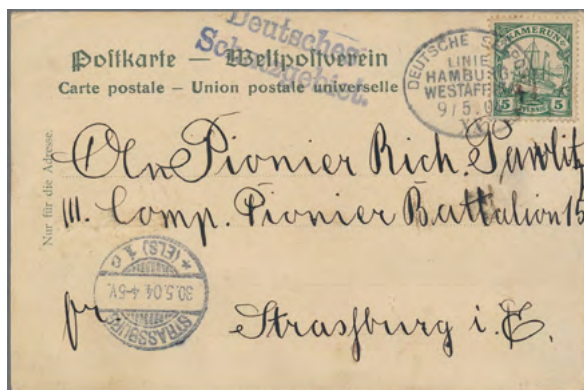 Deutsches
Schutzgebiet.
Postkarte — Weltpostverein
Carte postale – Union postale universelle
DEUTSCHE
LINIE
HAMBURG
WESTAFR
9/5.0
KAMERUN
5 PFENNIG 5
Nur für die Adresse.
An Pionier Rich. Pawlitz
III. Comp. Pionier Battalion 15
pr. Strassburg i. E.
STRASSBURG
30.5.04. 4-5V.
* (ELS) 1 c